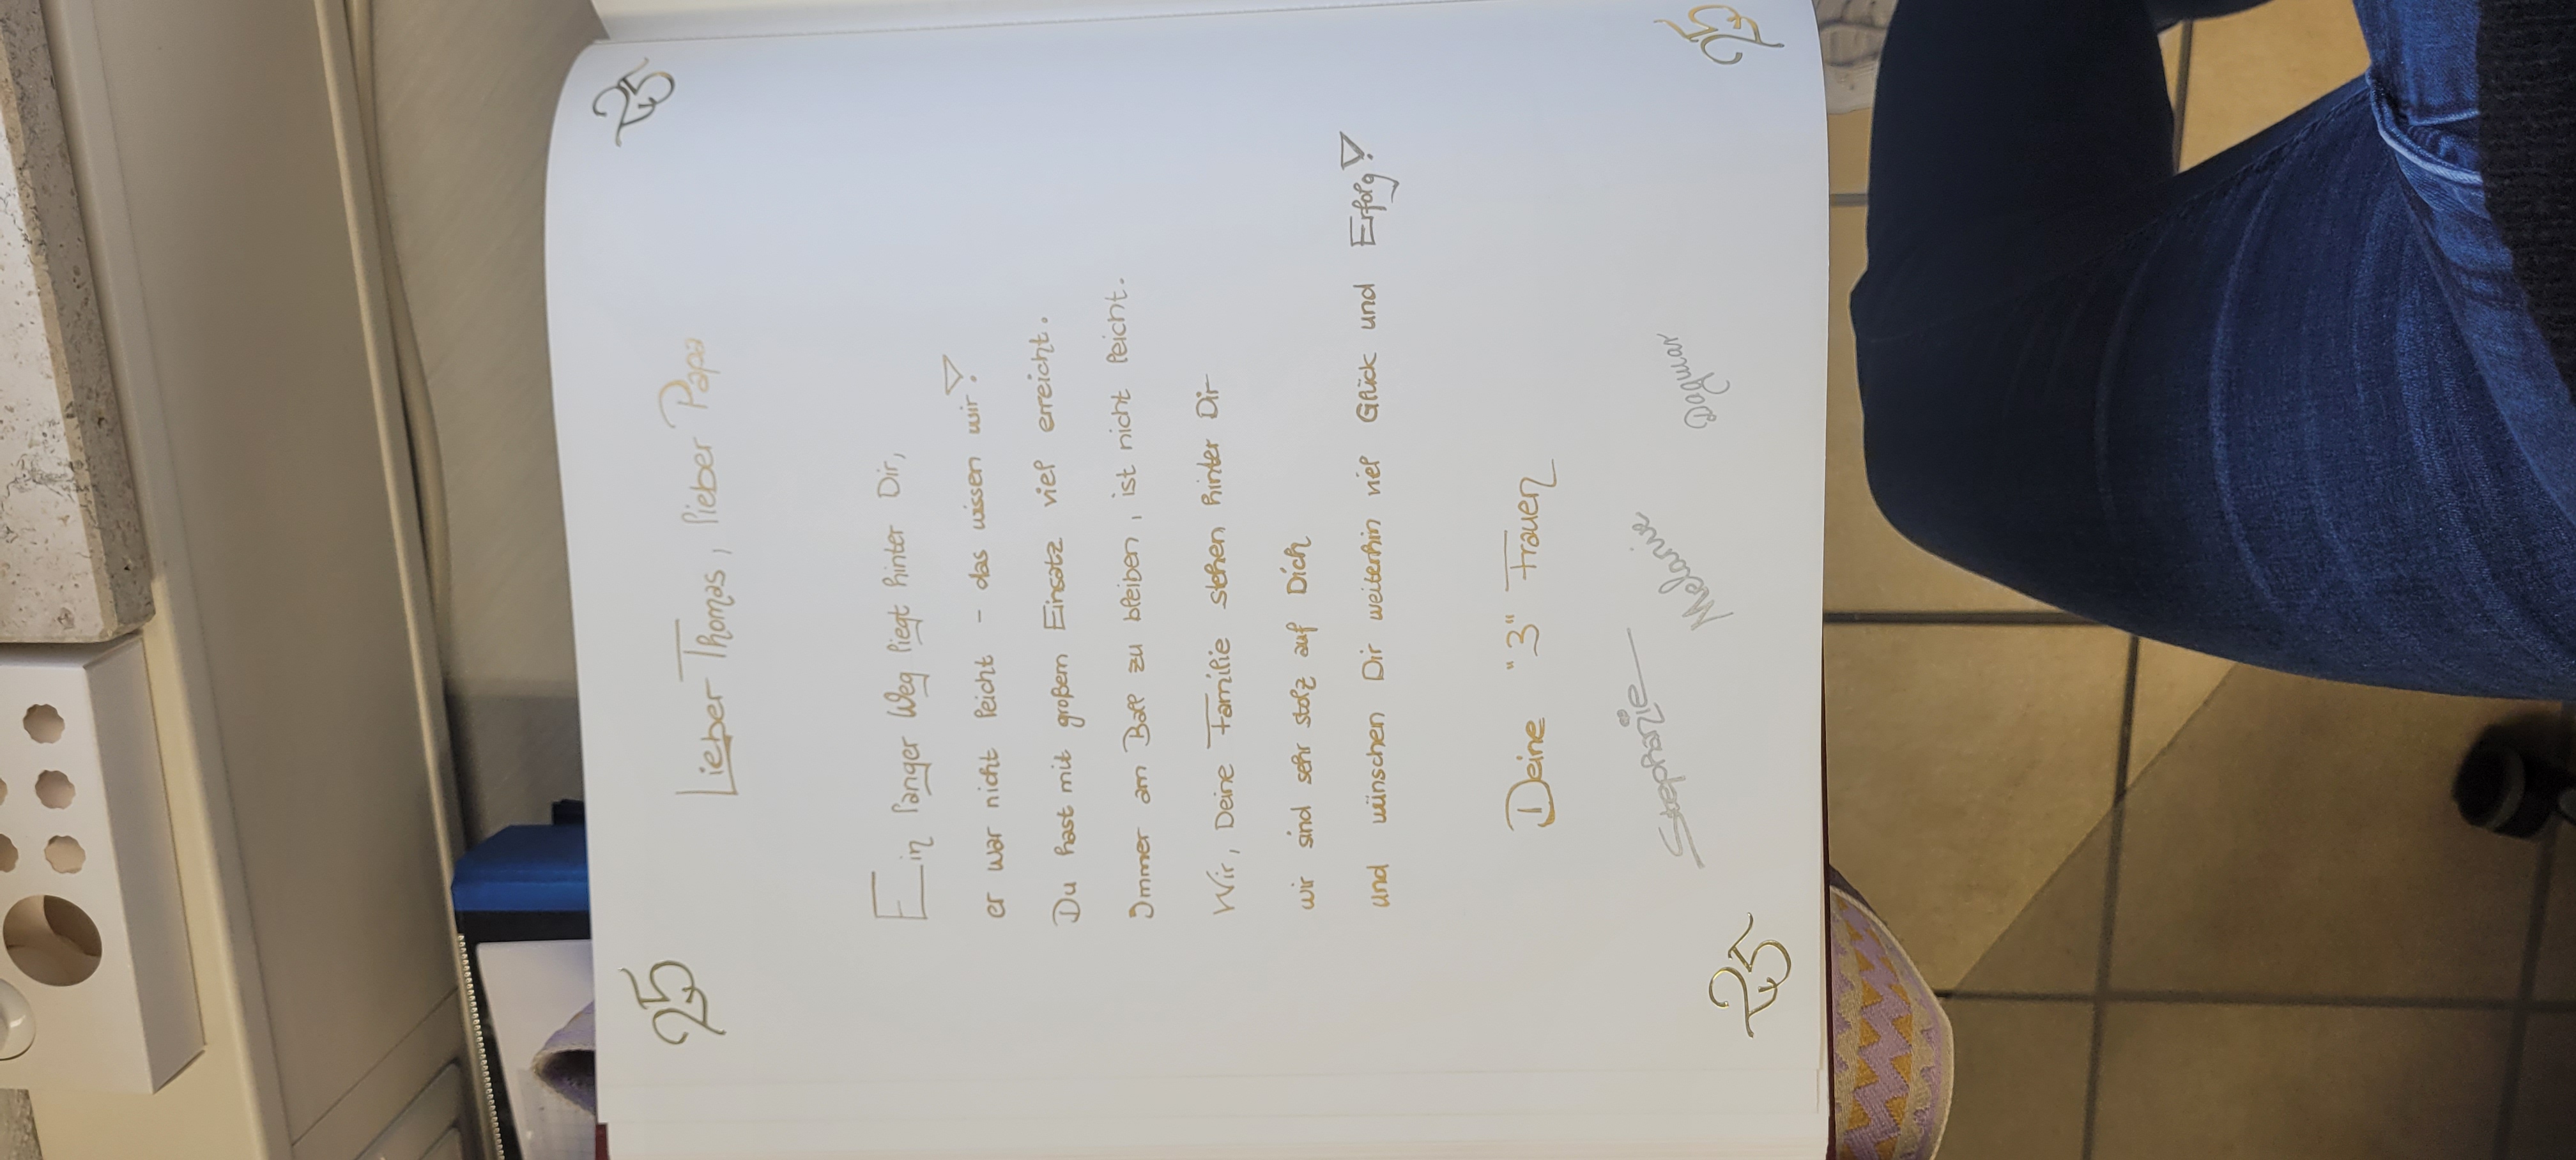 25 25
Lieber Thomas, lieber Papa
Ein langer Weg liegt hinter Dir,
er war nicht leicht - das wissen wir!
Du hast mit großem Einsatz viel erreicht.
Immer am Ball zu bleiben, ist nicht leicht.
Wir, Deine Familie stehen hinter Dir
wir sind sehr stolz auf Dich
und wünschen Dir weiterhin viel Glück und Erfolg!
Deine "3" Frauen
Stephanie Melanie Dagmar
25 25